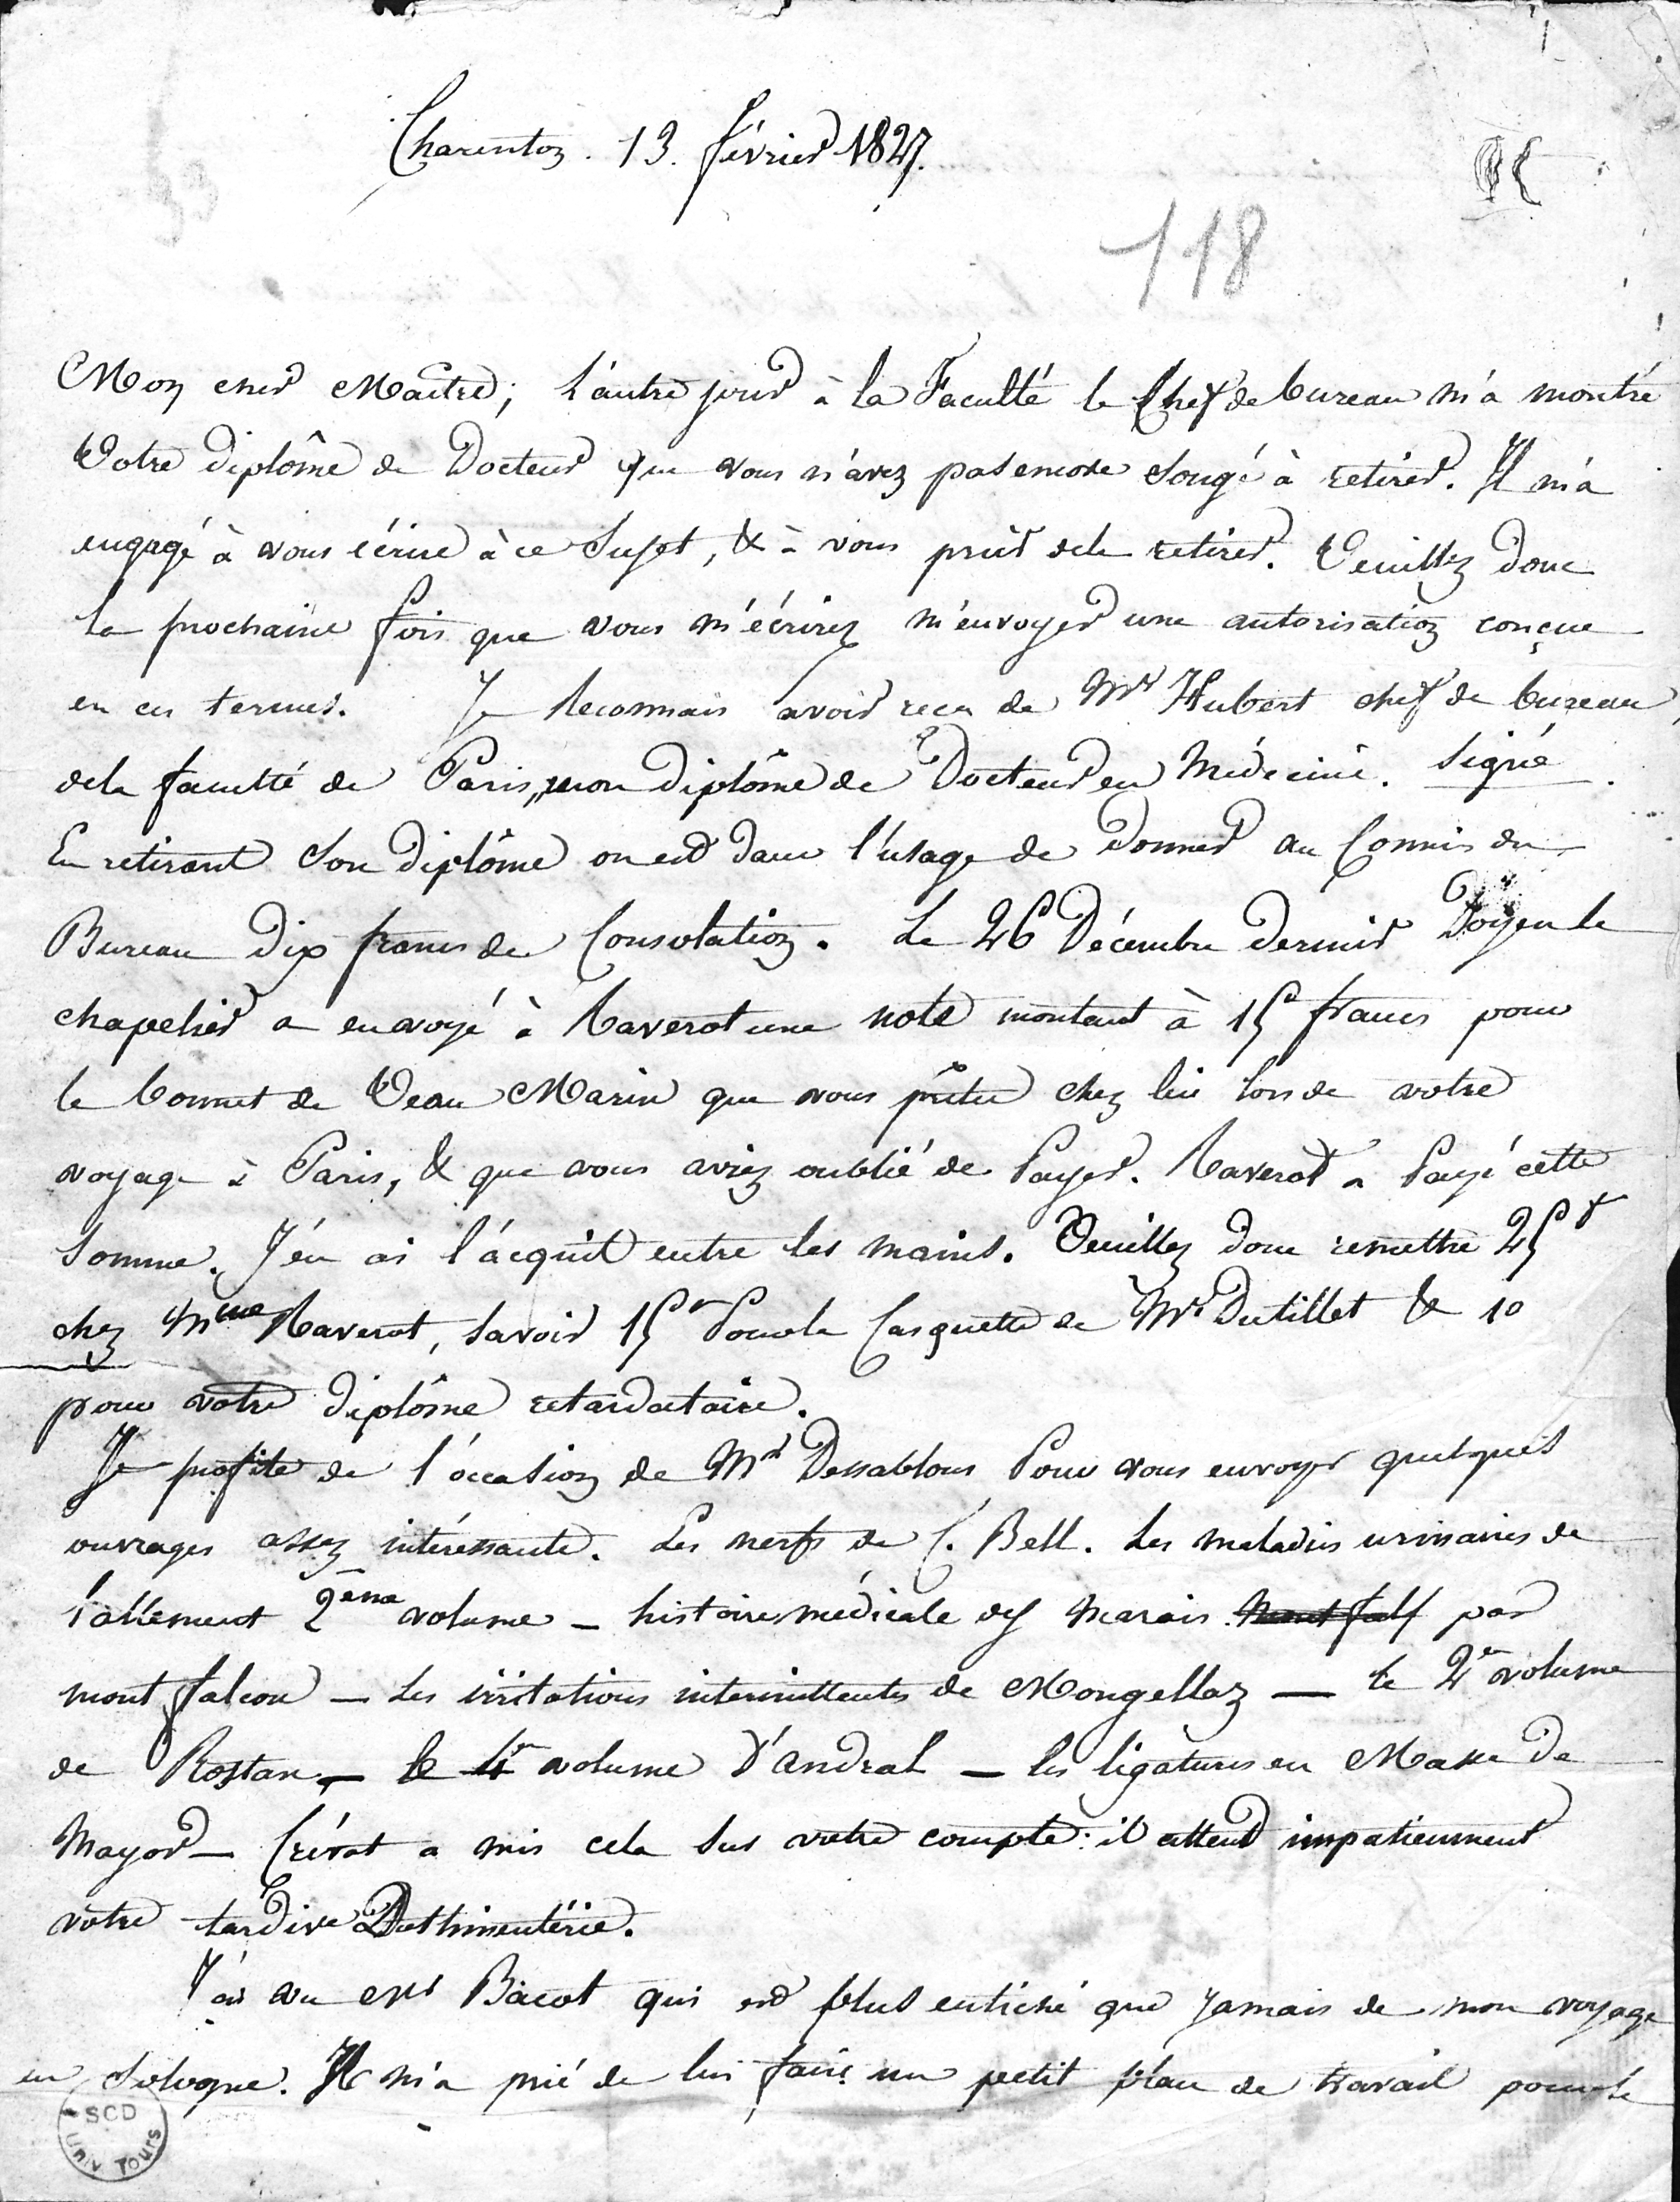 Charenton. 13. février 1827.
118
Mon cher Maître; L'autre jour à la Faculté le Chef de bureau m'a montré
Votre diplôme de Docteur que vous n'avez pas encore songé à retirer. Il m'a
engagé à vous écrire à ce sujet, & à vous prier de le retirer. Veuillez donc
la prochaine fois que vous m'écrirez m'envoyer une autorisation conçue
en ces termes. Je Reconnais avoir reçu de Mr Hubert chef de bureau
de la faculté de Paris, mon diplôme de Docteur en Médecine. Signé
En retirant son diplôme on est dans l'usage de donner au Commis du
Bureau dix francs de Consolation. Le 26 Décembre dernier Doyen le
chapelier a envoyé à Raverot une note montant à 15 francs pour
le bonnet de Veau Marin que vous prîtes chez lui lors de votre
voyage à Paris, & que vous aviez oublié de Payer. Raverot a Payé cette
Somme. J'en ai l'acquit entre les mains. Veuillez donc remettre 25 f
chez Mme Raverot, savoir 15 Pour la Casquette de Mr Dutillet & 10
pour votre diplôme retardataire.
Je profite de l'occasion de Mr Dessablons Pour vous envoyer quelques
ouvrages assez intéressants. Les nerfs de C. Bell. Les maladies urinaires de
Lallement 2ème volume - histoire médicale des marais par
mont falcon - Les irritations intermittentes de Mongellaz - le 2e volume
de Rostan - le 4e volume d'Andral - les ligatures en Masse de
Mayor - Crévot a mis cela sur votre compte: il attend impatiemment
votre tardive Dothinentérie.
J'ai vu Mr Bacot qui est plus entiché que jamais de mon voyage
en Sologne. Il m'a prié de lui faire un petit plan de travail pour le
SCD
Univ Tours